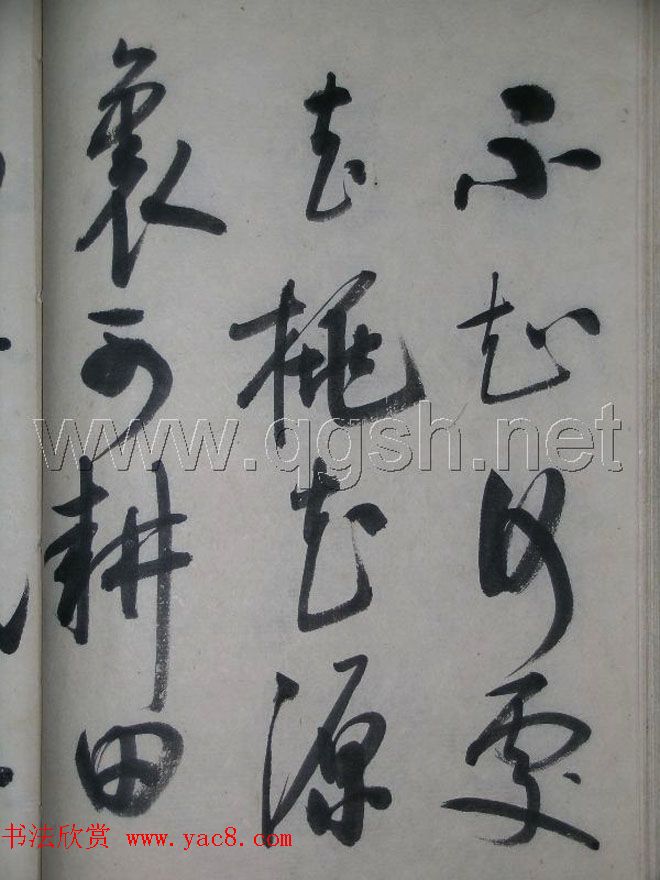 不知何處
去桃花源
裏可耕田
www.qgsh.net
书法欣赏 www.yac8.com